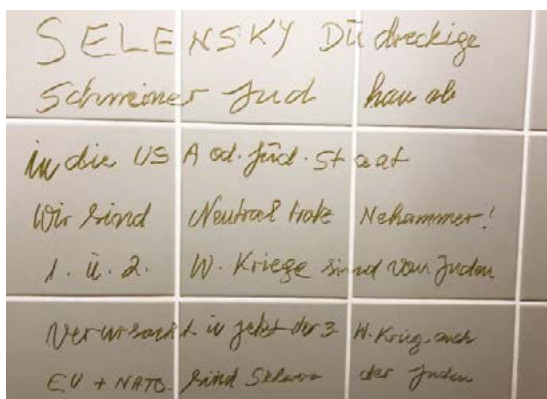 SELENSKY Dù dreckige
Schweiner Jud hau ab
in die USA od. Jüd. Staat
Wir sind Neutral trotz Nehammer!
1. ù. 2. W. Kriege sind von Juden
Verursacht ù jetzt der 3 W. Krieg. auch
EU + NATO. sind Sklaven der Juden